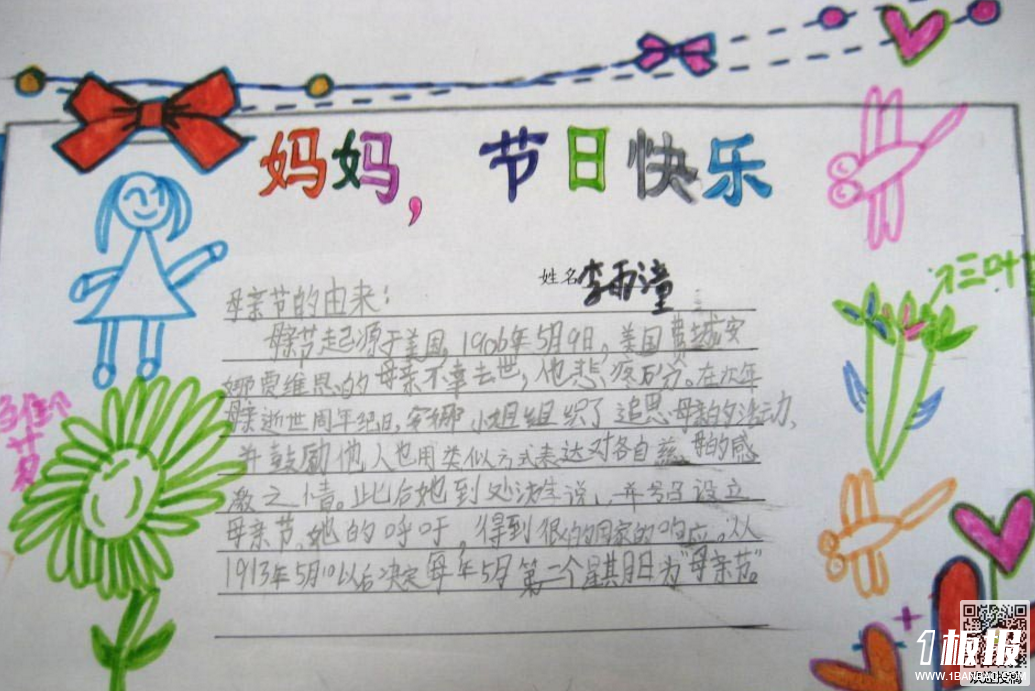 妈妈，节日快乐
姓名李雨潼
母亲节的由来：
母亲节起源于美国，1906年5月9日，美国费城安
娜贾维思的母亲不幸去世，他悲疼万分。在次年
母亲逝世周年纪日，安娜小姐组织了追思母亲的活动，
并鼓励他人也用类似方式表达对各自慈母的感
激之情。此后她到处 说，并号召设立
母亲节。她的呼吁，得到很 的国家的响应。从
1913年5月10以后决定每年5月第二个星期日为“母亲节”。
1板报
WWW.1BANBAO.COM